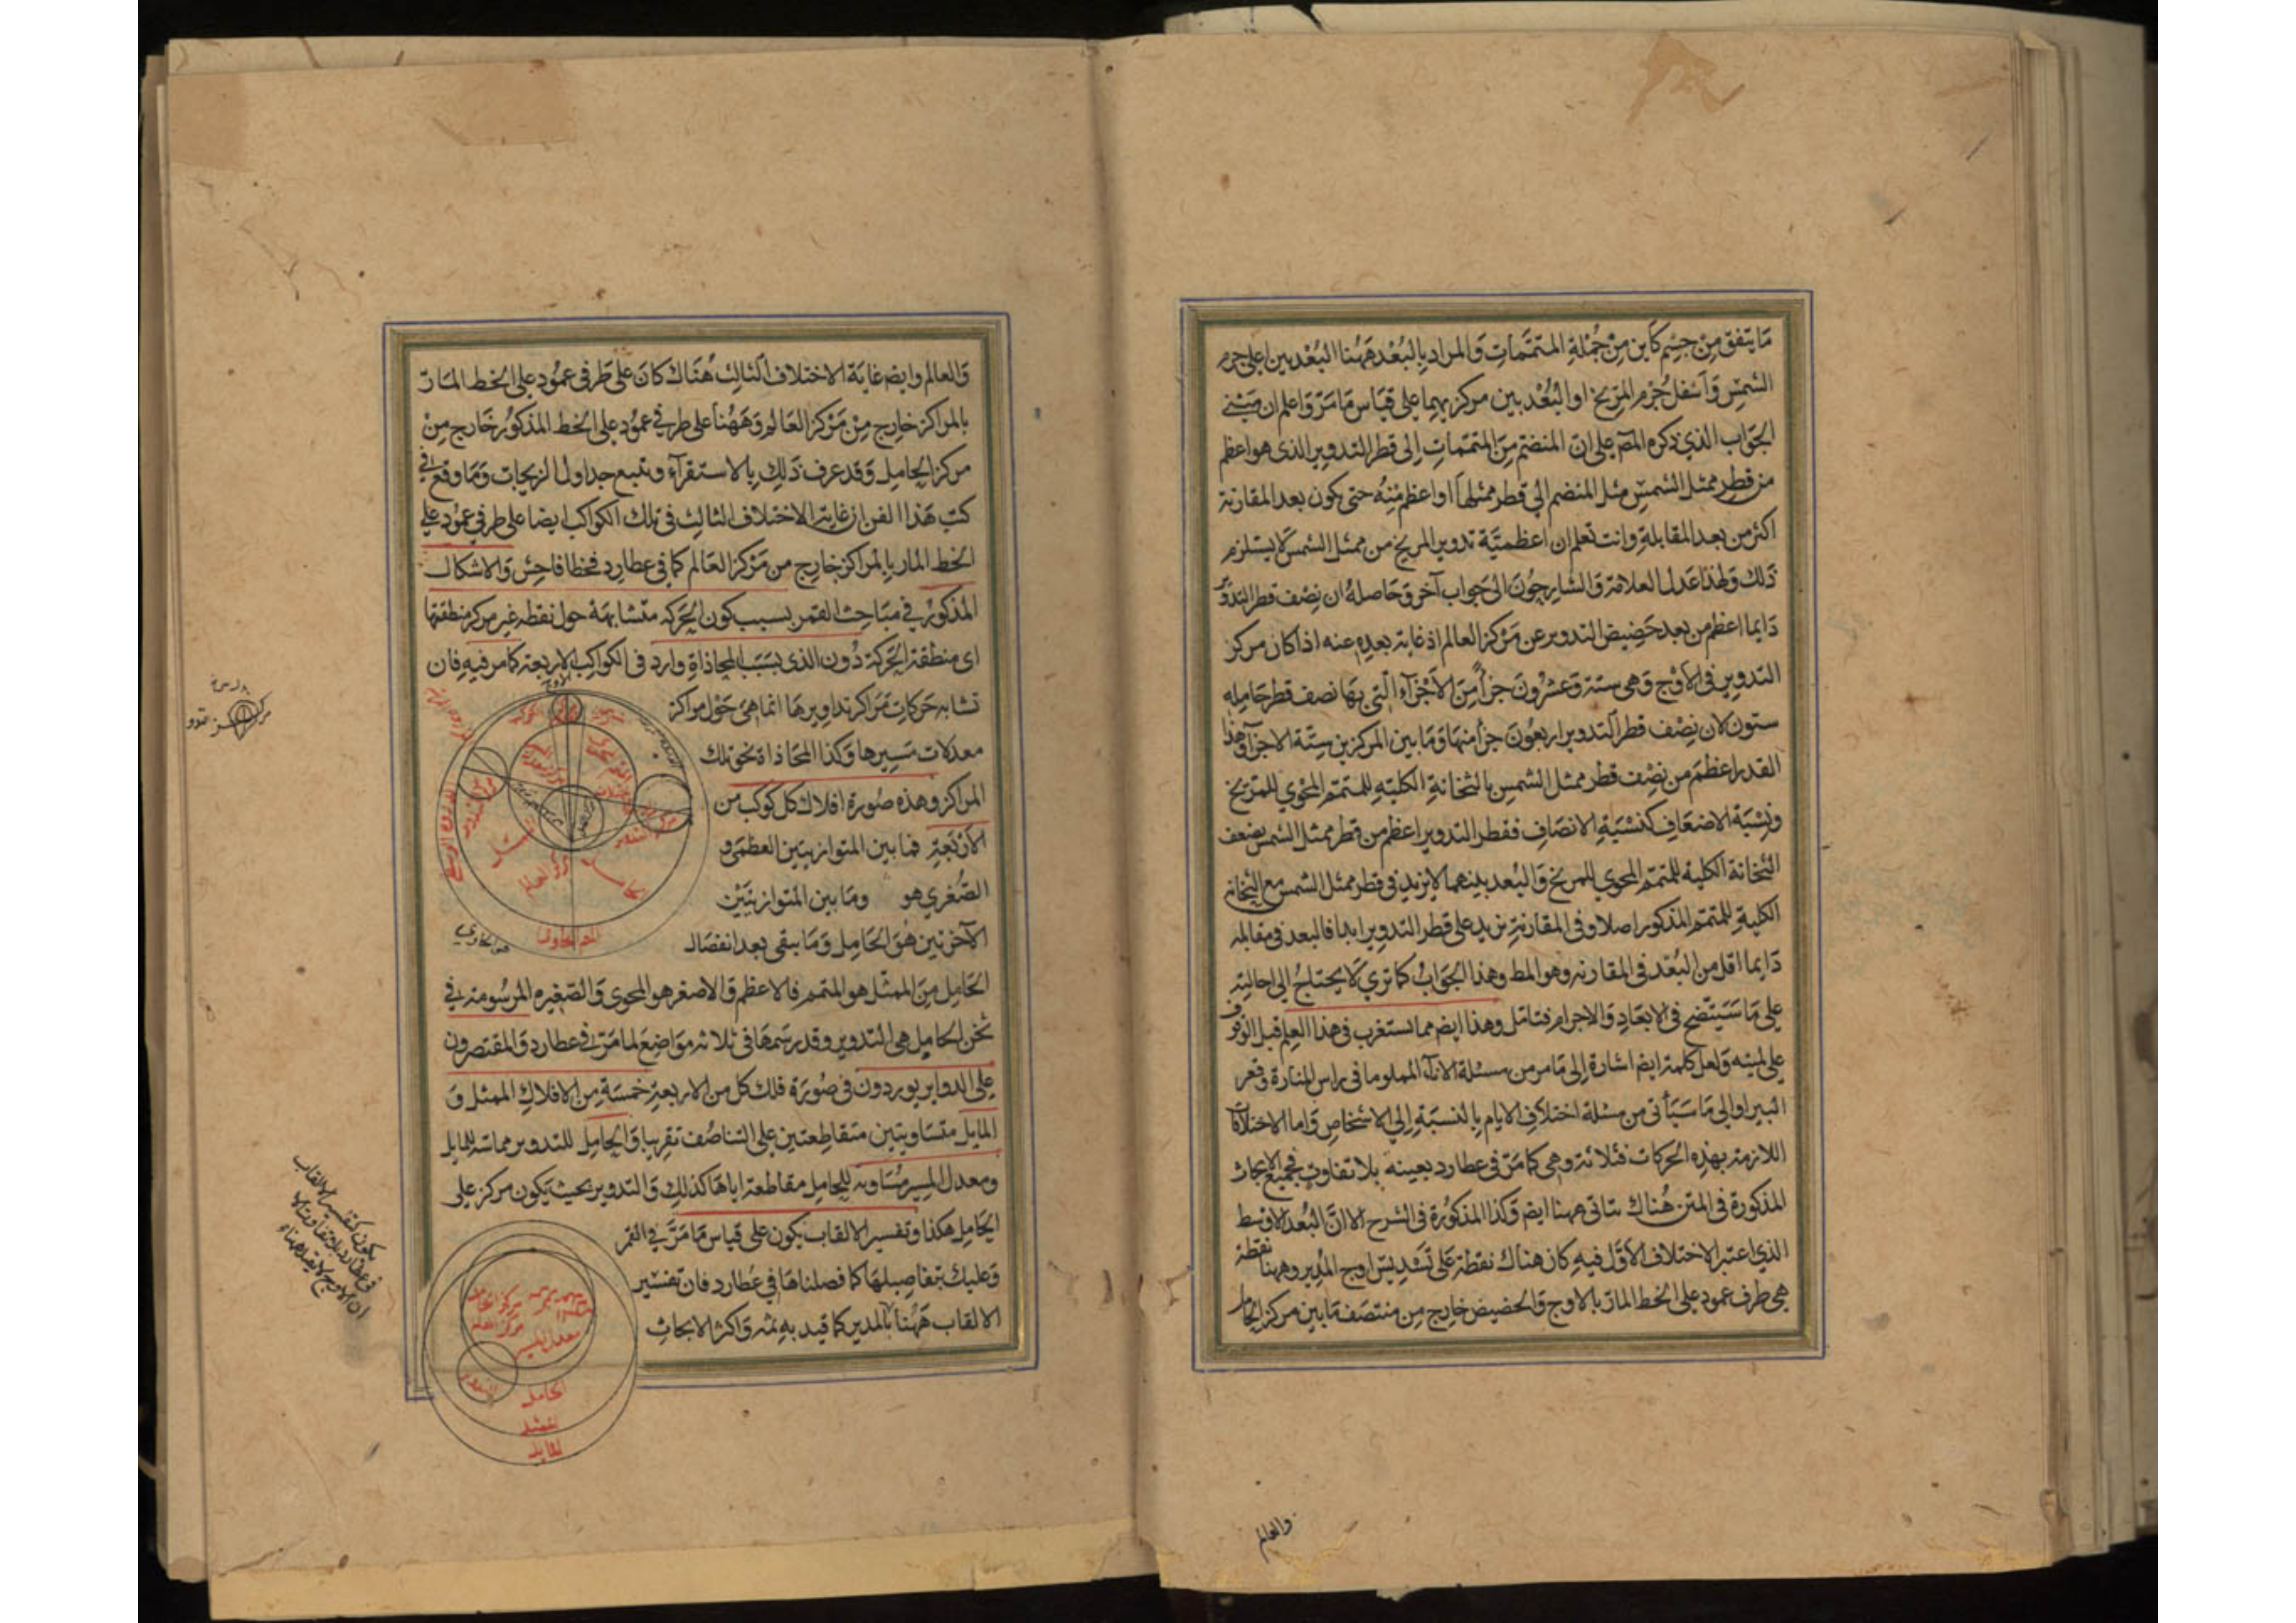 ما يتفق من جسم كاين من جملة المتممات والمراد بالبعد ههنا البعد بين اعلى جرم
الشمس واسفل جرم المريخ او البعد بين مركزيهما على قياس ما مر واعلم ان مبنى
الجواب الذي ذكره المص على ان المنضم من المتممات الى قطر التدوير الذى هو اعظم
من قطر ممثل الشمس مثل المنضم الى قطر ممثلها او اعظم منه حتى يكون بعد المقارنة
اكثر من بعد المقابلة وانت تعلم ان اعظمية تدوير المريخ من ممثل الشمس لا يستلزم
ذلك ولهذا عدل العلامة والشارحون الى جواب آخر وحاصله ان نصف قطر التدوير
دايما اعظم من بعد حضيض التدوير عن مركز العالم اذ غاية بعده عنه اذا كان مركز
التدوير في الاوج وهى ستة وعشرون جزأ من الاجزاء التي بها نصف قطر حامله
ستون لان نصف قطر التدوير اربعون جزأ منها وما بين المركزين ستة الاجزآ وهذا
القدر اعظم من نصف قطر ممثل الشمس بالثخانة الكلية للمتمم المحوي للمريخ
ونسبة الاضعاف كنسبة الانصاف فقطر التدوير اعظم من قطر ممثل الشمس بضعف
الثخانة الكلية للمتمم المحوي للمريخ والبعد بينهما لا يزيد في قطر ممثل الشمس مع الثخانة
الكلية للمتمم المذكور اصلا وفى المقارنة يزيد على قطر التدوير ابدا فالبعد فى مقابلته
دايما اقل من البعد فى المقارنه وهو المط وهذا الجواب كما تري لا يحتاج الى احالته
على ما سيتضح في الابعاد والاجرام فتامل وهذا ايض مما يستغرب فى هذا العلم قبل الوقوف
على لميته ولعل كلمة ايض اشارة الى ما مر من مسئلة الاناء المملو ما فى راس المنارة وقعر
البير او الى ما سيأتى من مسئلة اختلاف الايام بالنسبة الى الاشخاص واما الاختلافات
اللازمة بهذه الحركات فثلاثة وهي كما مر فى عطارد بعينه بلا تفاوت فجميع الابحاث
المذكورة فى المتن هناك يتاتى ههنا ايض وكذا المذكورة فى الشرح الا ان البعد الاوسط
الذي اعتبر الاختلاف الاول فيه كان هناك نقطة على تسديس اوج المدير وههنا نقطة
هي طرف عمود على الخط المار بالاوج والحضيض خارج من منتصف ما بين مركز الحامل
والعالم
والعالم وايض غاية الاختلاف الثالث هناك كان على طرفى عمود على الخط المار
بالمراكز خارج من مركز العالم وههنا على طرفي عمود على الخط المذكور خارج من
مركز الحامل وقد عرف ذلك بالاستقرآء وتتبع جداول الزيجات وما وقع في
كتب هذا الفن ان غاية الاختلاف الثالث فى تلك الكواكب ايضا على طرفي عمود على
الخط المار بالمراكز خارج من مركز العالم كما في عطارد فخطا فاحش والاشكال
المذكور في مباحث القمر بسبب كون الحركه متشابهة حول نقطه غير مركز منطقتها
اى منطقة الحركة دون الذى بسبب المحاذاة وارد فى الكواكب الاربعة كما مر فيه فان
تشابه حركات مراكز تداويرها انما هي حول مراكز
معدلات مسيرها وكذا المحاذاة نحو تلك
المراكز وهذه صورة افلاك كل كوكب من
الاربعة فما بين المتوازيتين العظمى و
الصغري هو وما بين المتوازيتين
الآخرتين هو الحامل وما يبقى بعد انفصال
الحامل من الممثل هو المتمم فالاعظم والاصغر هو المحوى والصغيره المرسومة في
ثخن الحامل هي التدوير وقد رسمها فى ثلاثه مواضع لما مر في عطارد والمقتصرون
على الدواير يوردون فى صورة فلك كل من الاربعة خمسة من الافلاك الممثل و
المايل متساويتين متقاطعتين على التناصف تقريبا والحامل للتدوير مماسة للمايل
ومعدل المسير مساويه للحامل مقاطعة اياها كذلك والتدوير بحيث يكون مركزه على
الحامل هكذا وتفسير الالقاب يكون على قياس ما مر في القمر
وعليك بتفاصيلها كما فصلناها في عطارد فان تفسير
الالقاب ههنا بالمدير كما قيد به ثمه واكثر الابحاث
الاوج
ممثل
حامل
مركز العالم
المتمم الحاوى
المتمم الحاوي
مركز التدوير
مركز الحامل
مركز العالم
معدل المسير
التدوير
الحامل
الممثل
المايل